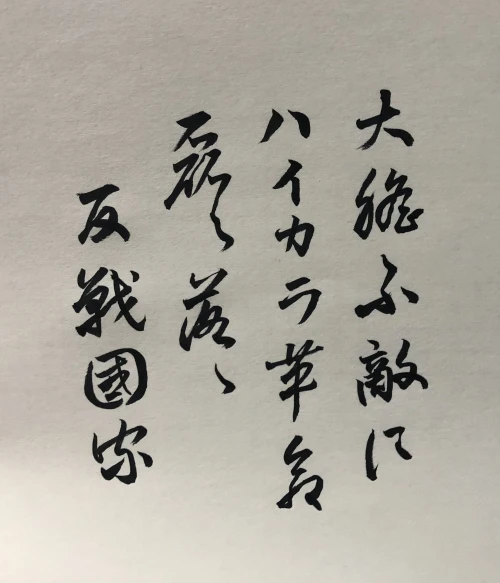 大膽不敵に
ハイカラ革命
磊々落々
反戦國家